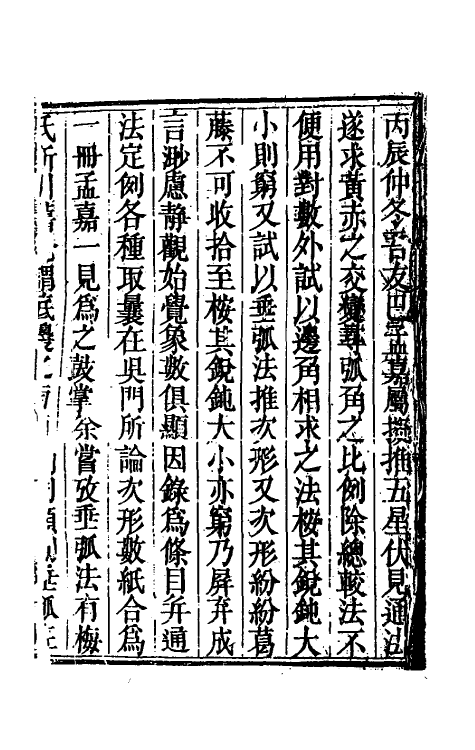 丙辰仲冬吾友巴孟嘉屬撰推五星伏見通法
遂求黃赤之交變尋弧角之比例除總較法不
便用對數外試以邊角相求之法按其銳鈍大
小則窮又試以垂弧法推次形又次形紛紛葛
藤不可收拾至按其銳鈍大小亦窮乃屏弃成
言渺慮靜觀始覺象數俱顯因錄爲條目弁通
法定例各種取曩在吳門所論次形數紙合爲
一冊孟嘉一見爲之鼓掌余嘗攷垂弧法有梅
氏所